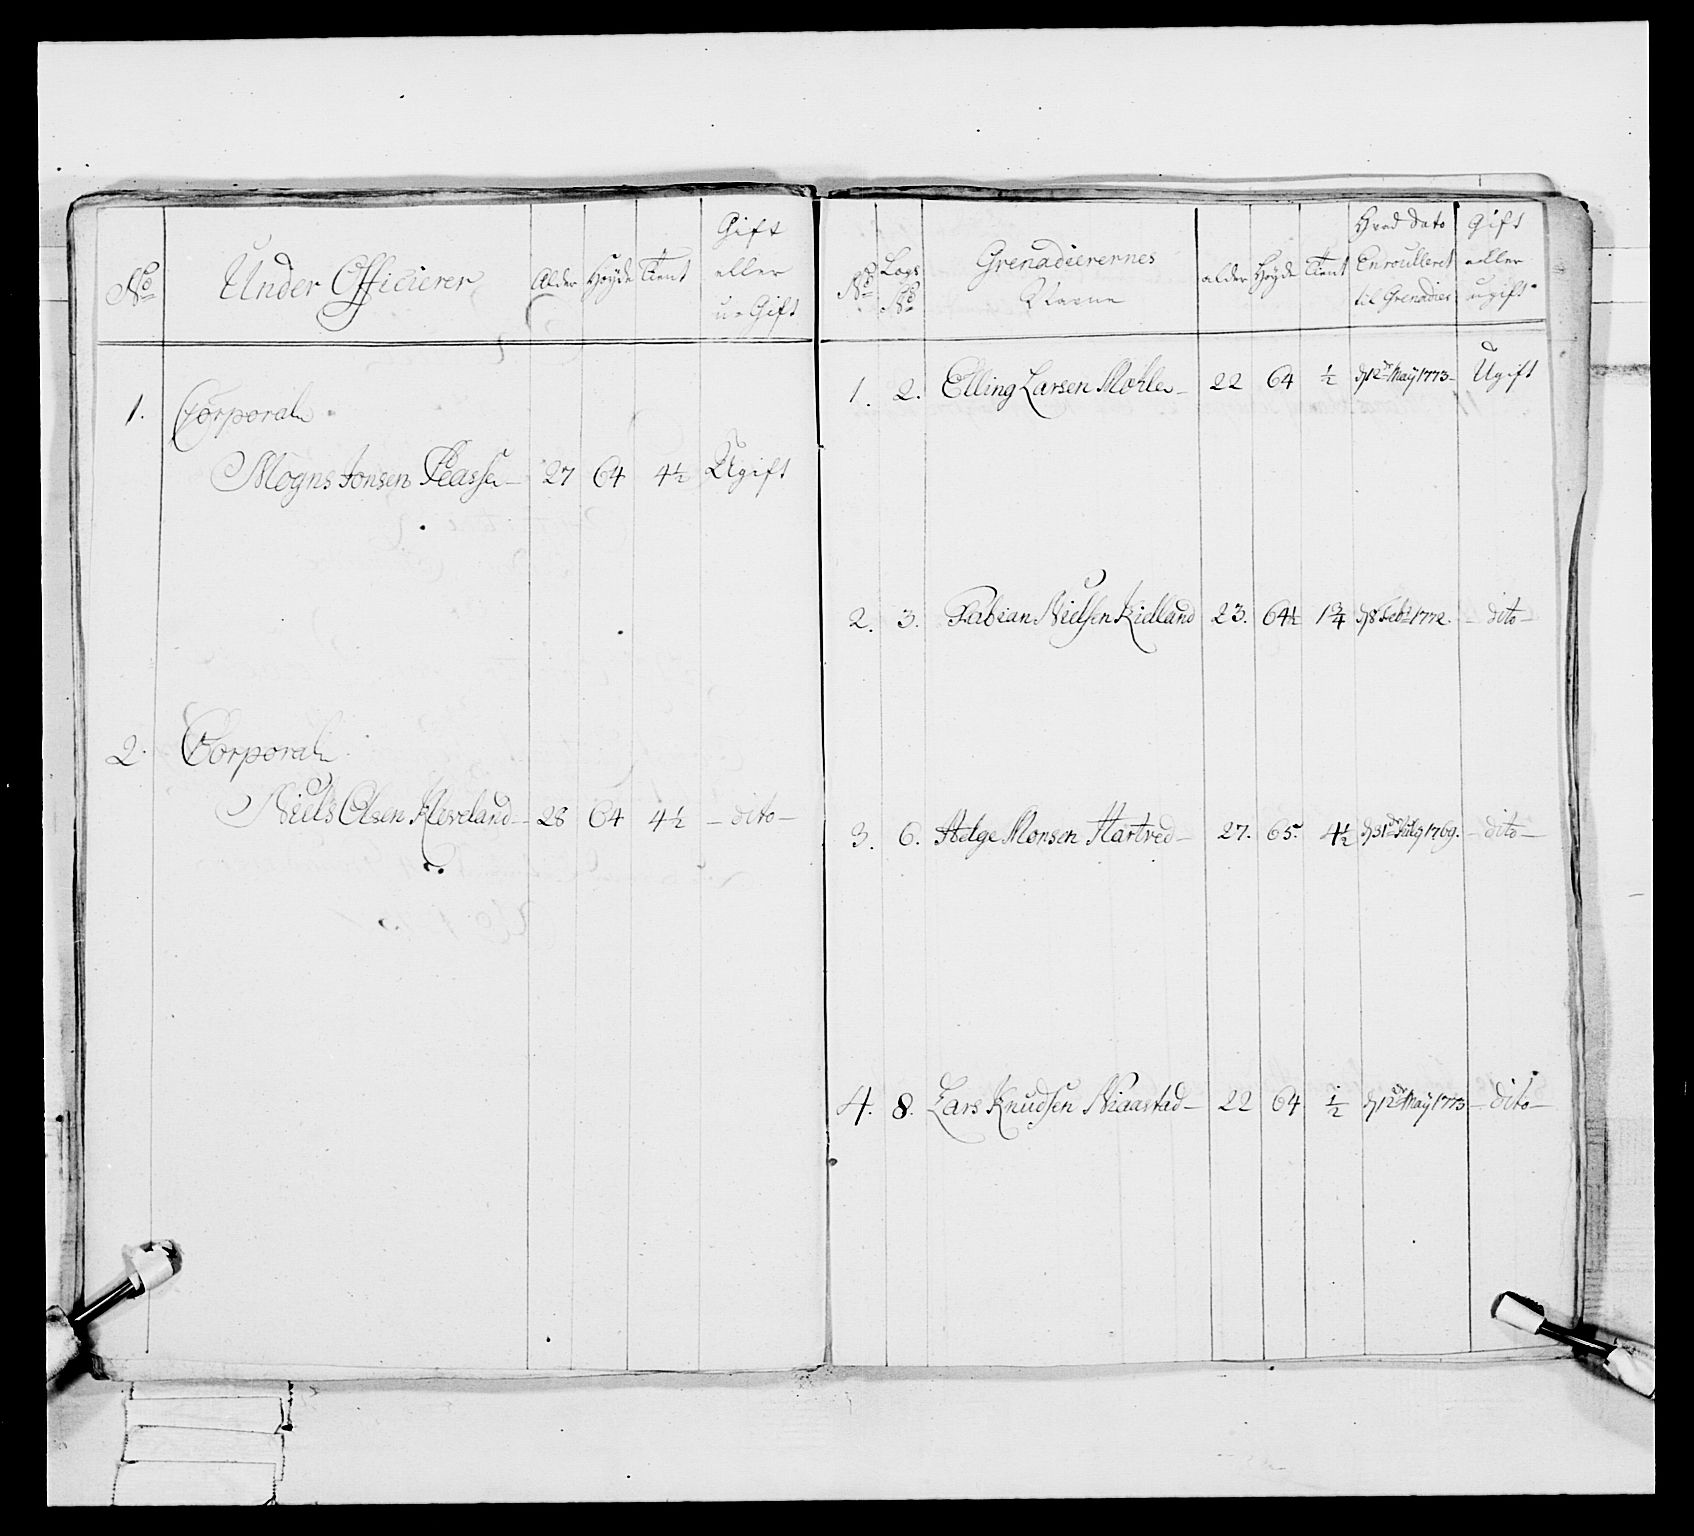 No Under Officierer Alder Høyde Tient Gift eller u-Gift
1. Corporal
Mogns Jonsen 27 64 4½ Ugift
2. Corporal
Niels Olsen Kleveland 28 64 4½ dito
No Logs No Grenadeerernes Navne alder Høyde Tient Hvad Dato Enroulleret til Grenadeer Gift eller ugift
1. 2. Elling Larsen Mohle 22 64 ½ d 12te Maÿ 1773 Ugift
2. 3. Fabian Nielsen Kidland 23. 64½ 1¾ d 8 Febr 1772. dito
3. 6. Helge Monsen Hartved 27. 65. 4½ d 31te July 1769. dito
4. 8. Lars Knudsen Niaastad 22 64 ½ d 12te Maÿ 1773 dito